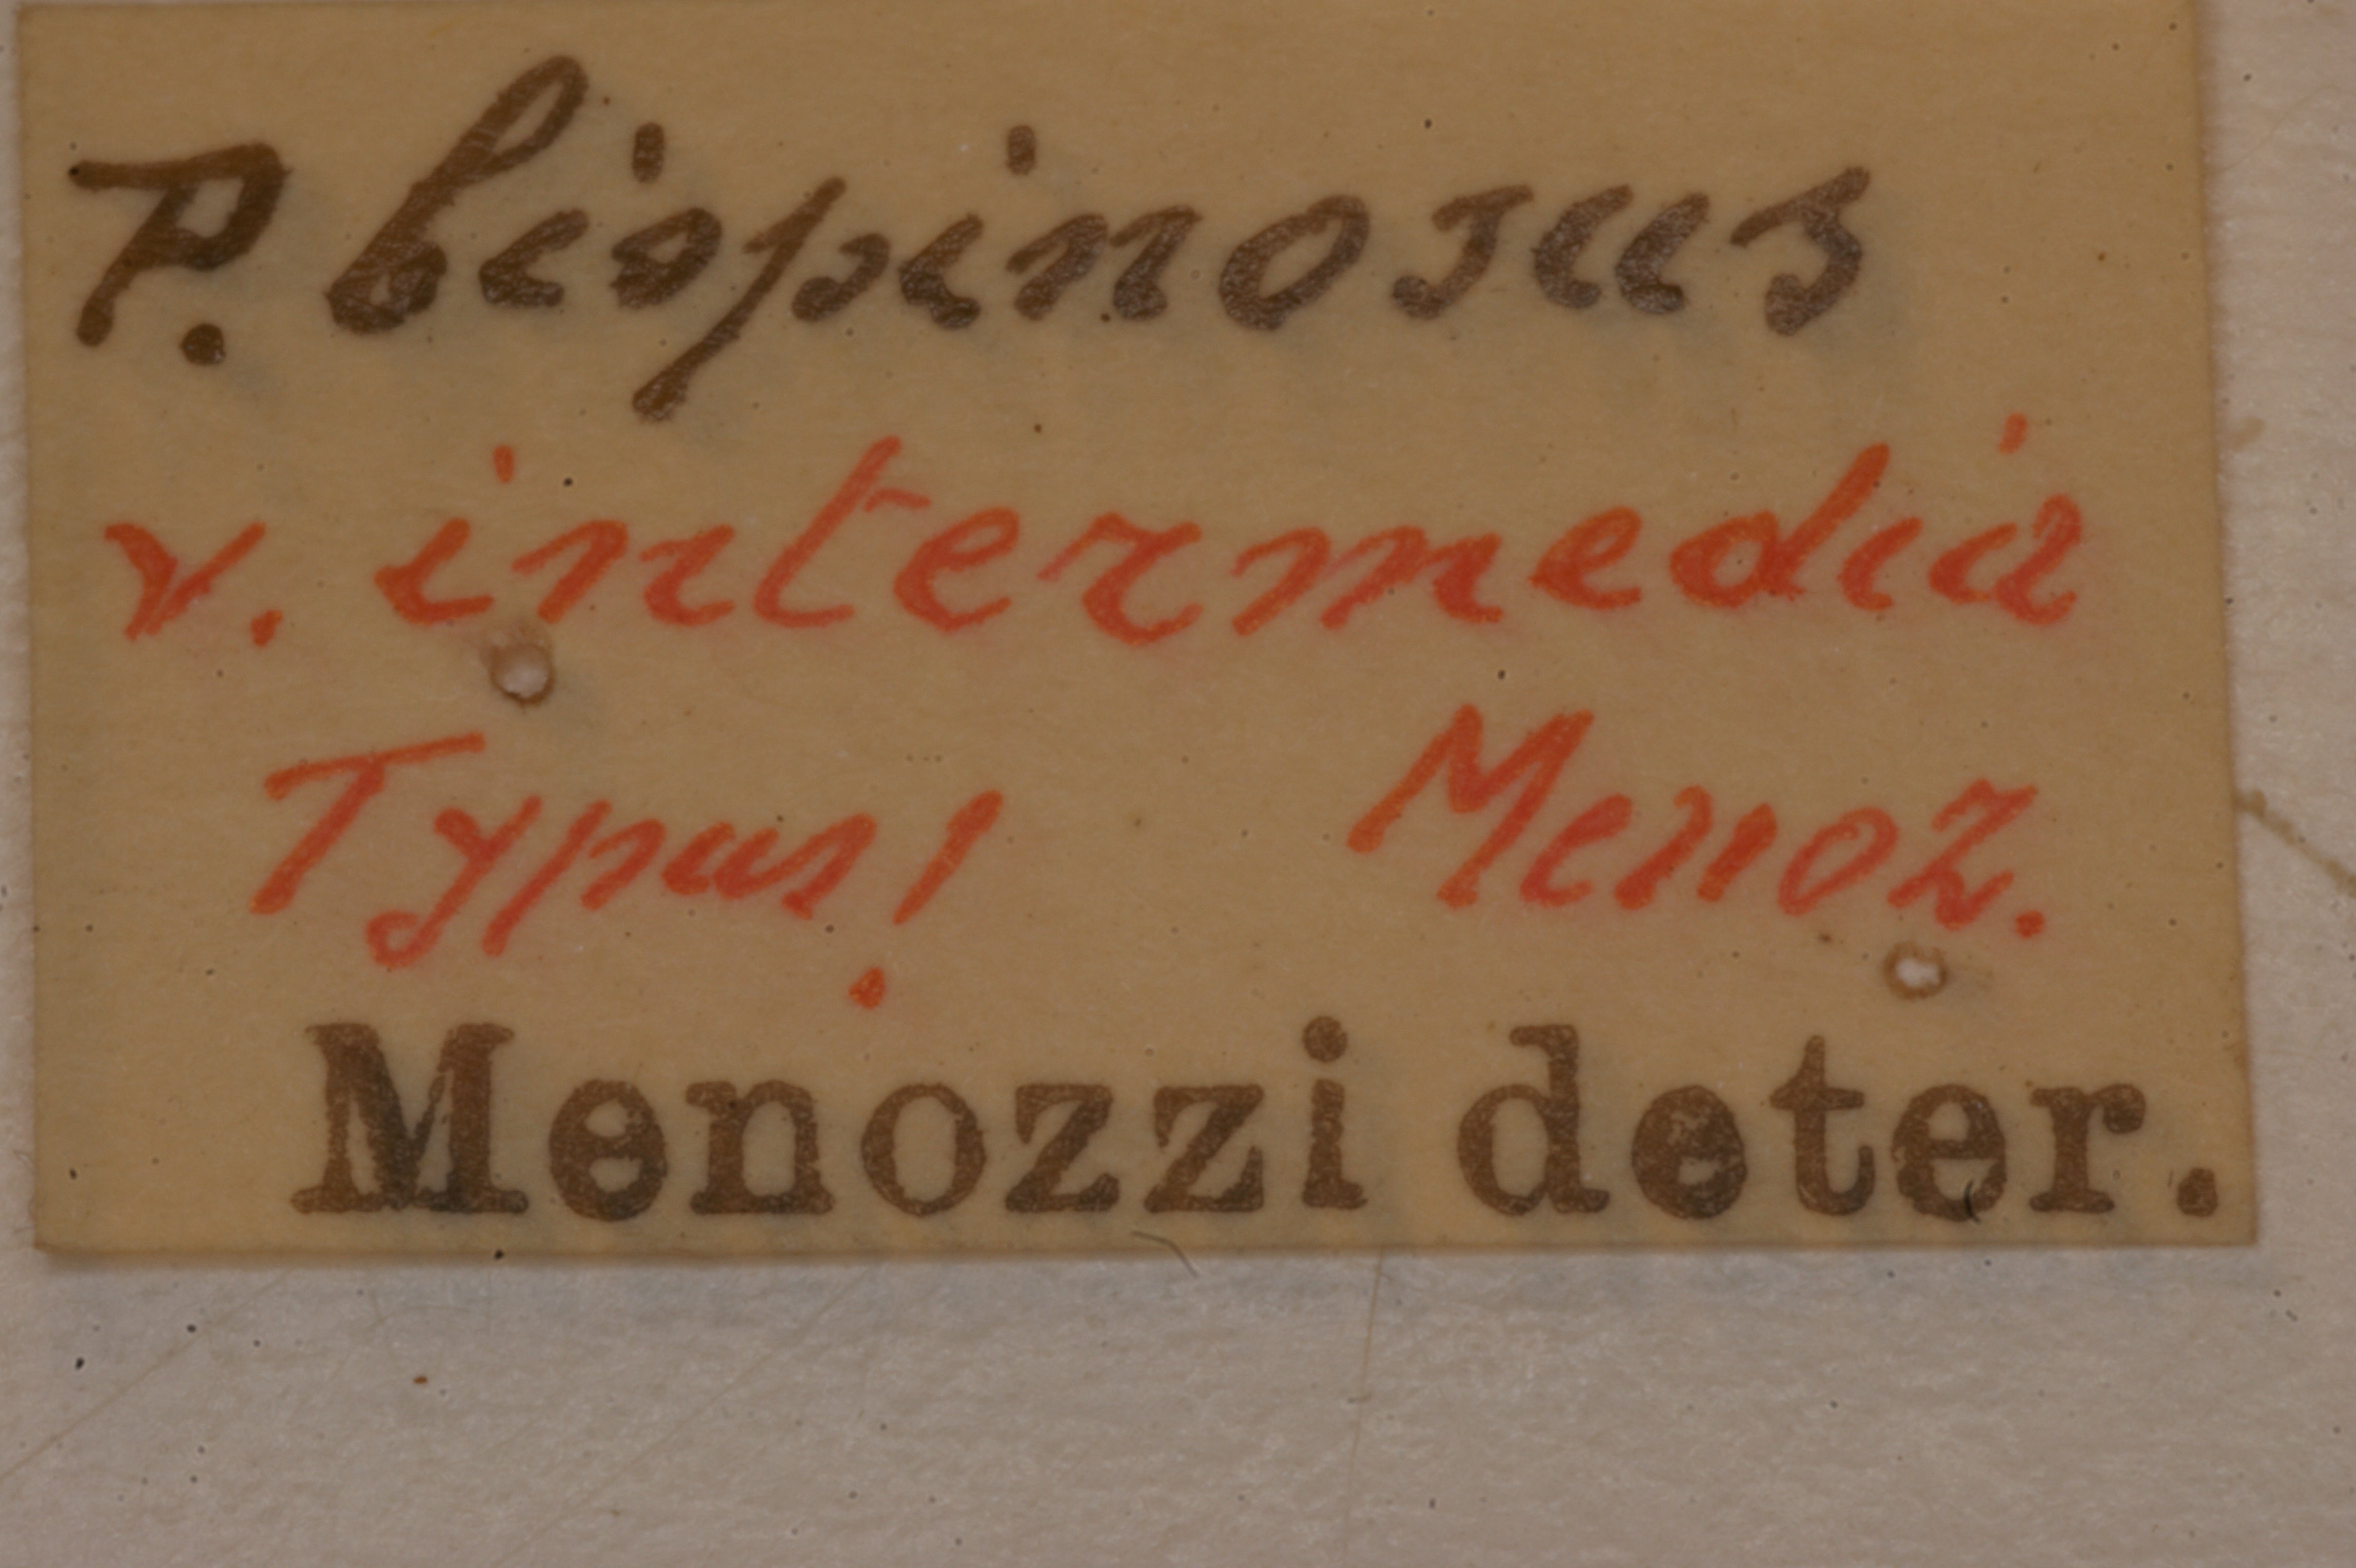 P. bispinosus
v. intermedia
Typus! Menoz.
Menozzi deter.